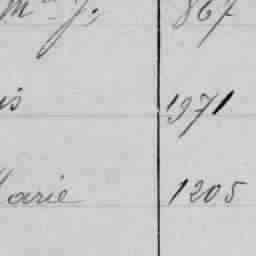 Mme J. 867
is 1971
arie 1205